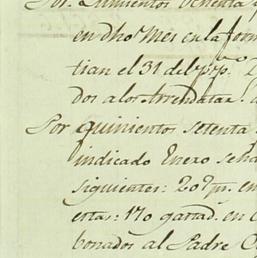 Por. Quinientos ochenta y
en dho. Mes en la form
tian el 31 del pp.
dos a los Arrendatar.
Por quinientos setenta
indicado Enero seña
siguientes: 20 pp. en
estas: 170 gastad. en c
bonados al Padre C